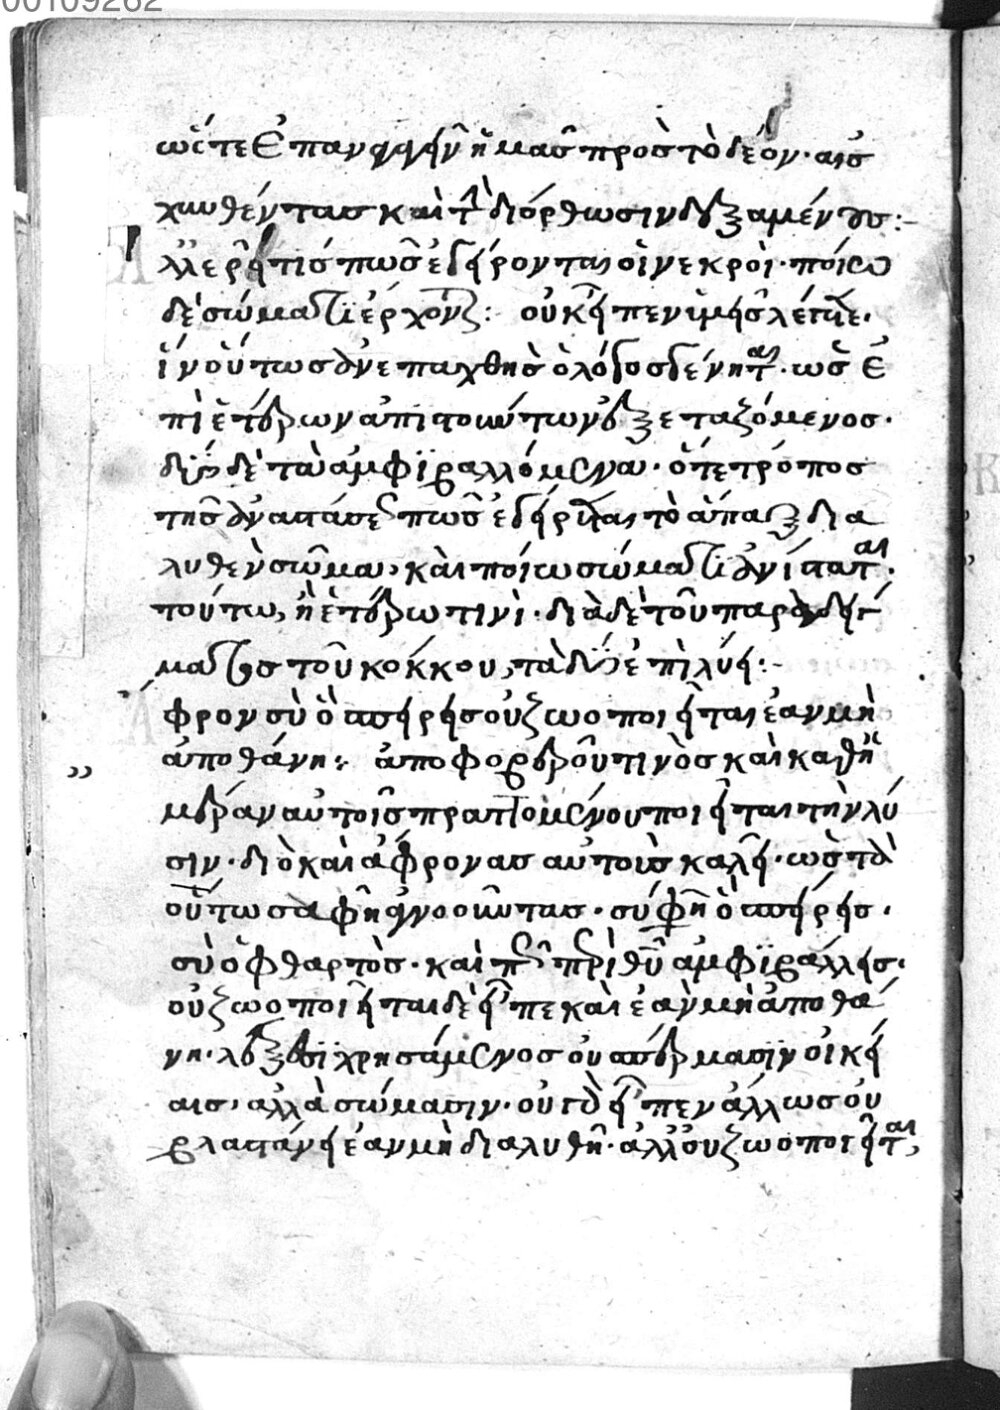 00109262
ὥστε ἐπανελθεῖν ἡμᾶς πρὸς τὸ δέον· αἰσ
χυνθέντας καὶ τὴν διόρθωσιν δεξαμένους:
λλ' ἐρεῖ τίς πῶς ἐγείρονται οἱ νεκροὶ· ποίω
δὲ σώματι ἔρχονται: οὐκ εἶπεν ὑμεῖς λέγετε·
ἵν' οὕτως ἀνεπαχθὴς ὁ λόγος γένηται· ὡς ἐ
πὶ ἑτέρων ἀπιστούντων ἐξεταζόμενος·
δύο δὲ τὰ ἀμφιβαλλόμενα· ὅ τε τρόπος
τῆς ἀναστάσεως πῶς ἐγείρεται τὸ ἅπαξ δια
λυθὲν σῶμα, καὶ ποίω σώματι ἀνίσταται·
τούτω, ἢ ἑτέρω τινὶ· διὰ δὲ τοῦ παραδείγ
ματος τοῦ κόκκου, τὰ δύο ἐπιλύει:
φρον σὺ ὃ σπείρεις οὐ ζωοποιεῖται ἐὰν μὴ
ἀποθάνη: ἀπὸ φοβεροῦ τινὸς καὶ καθ' ἡ
μέραν αὐτοῖς πραττομένου ποιεῖται τὴν λύ
σιν· διὸ καὶ ἄφρονας αὐτοὺς καλεῖ· ὡς τὰ
οὕτω σαφῆ ἀγνοοῦντας· σύ φησιν ὃ σπείρεις·
σὺ ὁ φθαρτὸς· καὶ πῶς περὶ θεοῦ ἀμφιβάλλεις·
οὐ ζωοποιεῖται δὲ εἶπε καὶ ἐὰν μὴ ἀποθά
νη· λέξεσι χρησάμενος οὐ σπέρμασιν οἰκεί
αις, ἀλλὰ σώμασιν· οὐ γὰρ εἶπεν ἄλλως οὐ
βλαστάνει ἐὰν μὴ διαλυθῆ· ἀλλ' οὐ ζωοποιεῖται,